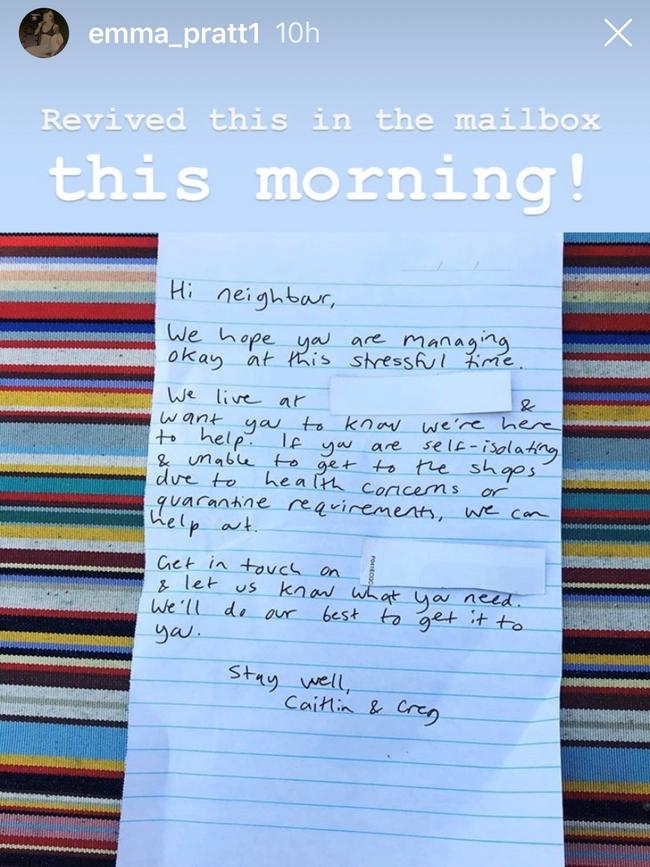 emma_pratt1 10h
Revived this in the mailbox
this morning!
Hi neighbour,
We hope you are managing
okay at this stressful time.
We live at &
want you to know we're here
to help. If you are self-isolating
& unable to get to the shops
due to health concerns or
quarantine requirements, we can
help out.
Get in touch on
& let us know what you need.
We'll do our best to get it to
you.
Stay well,
Caitlin & Greg